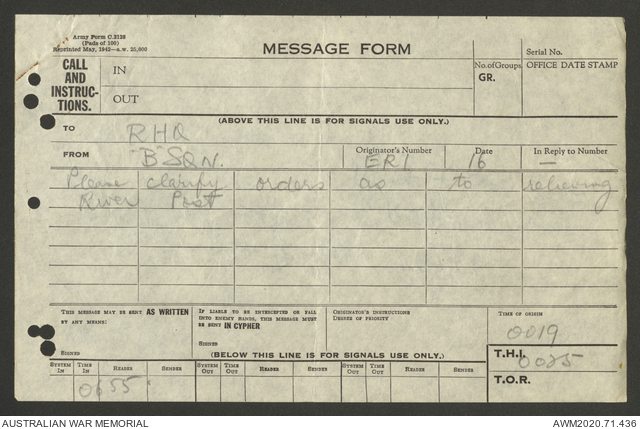 Army Form C.2128
(Pads of 100)
Reprinted May, 1943—s.w. 25,000
MESSAGE FORM
Serial No.
CALL AND INSTRUC-TIONS.
IN
OUT
No. of Groups
GR.
OFFICE DATE STAMP
(ABOVE THIS LINE IS FOR SIGNALS USE ONLY.)
TO RHQ
FROM "B" SQN.
Originator's Number ER1
Date 16
In Reply to Number —
Please clarify orders as to relieving
River Post
THIS MESSAGE MAY BE SENT AS WRITTEN BY ANY MEANS:
SIGNED
IF LIABLE TO BE INTERCEPTED OR FALL INTO ENEMY HANDS, THIS MESSAGE MUST BE SENT IN CYPHER
SIGNED
ORIGINATOR'S INSTRUCTIONS
DEGREE OF PRIORITY
TIME OF ORIGIN
0019
(BELOW THIS LINE IS FOR SIGNALS USE ONLY.)
T.H.I. 0025
SYSTEM IN TIME IN READER SENDER SYSTEM OUT TIME OUT READER SENDER SYSTEM OUT TIME OUT READER SENDER
T.O.R.
0655
AUSTRALIAN WAR MEMORIAL
AWM2020.71.436